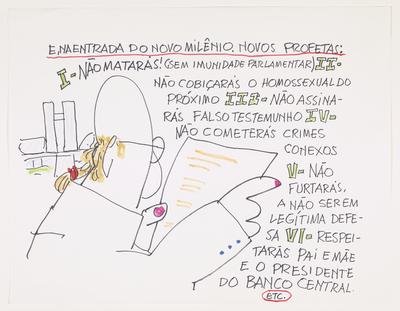 E, NA ENTRADA DO NOVO MILÊNIO, NOVOS PROFETAS:
I - NÃO MATARÁS! (SEM IMUNIDADE PARLAMENTAR) II -
NÃO COBIÇARÁS O HOMOSSEXUAL DO
PRÓXIMO III - NÃO ASSINA-
RÁS FALSO TESTEMUNHO IV -
NÃO COMETERÁS CRIMES
CONEXOS
V - NÃO
FURTARÁS,
A NÃO SER EM
LEGÍTIMA DEFE-
SA VI - RESPEI-
TARÁS PAI E MÃE
E O PRESIDENTE
DO BANCO CENTRAL.
ETC.